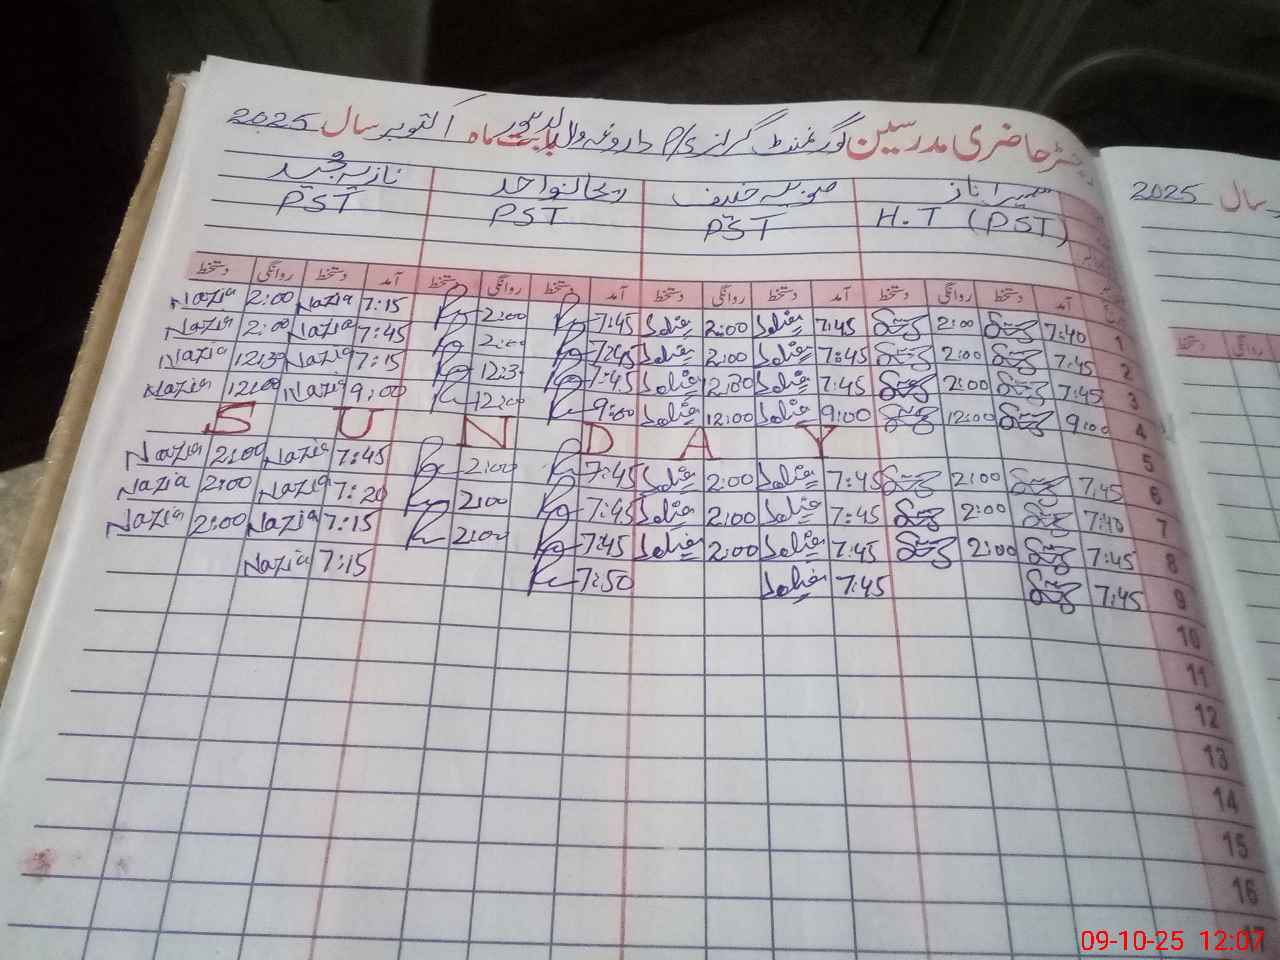 رجسٹر حاضری مدرسین گورنمنٹ گرلز P/S داروغہ والا لاہور بابت ماہ اکتوبر سال 2025
سمیرا ناز صوبیہ حنیف ریحانہ واحد نازیہ مجید
H.T (PST) PST PST PST
آمد دستخط روانگی دستخط آمد دستخط روانگی دستخط آمد دستخط روانگی دستخط آمد دستخط روانگی دستخط
1 7:40 2:00 7:45 صوبیہ 2:00 صوبیہ 7:45 2:00 7:15 Nazia 2:00 Nazia
2 7:45 2:00 7:45 صوبیہ 2:00 صوبیہ 7:45 2:00 7:45 Nazia 2:00 Nazia
3 7:45 2:00 7:45 صوبیہ 12:30 صوبیہ 7:45 12:30 7:15 Nazia 12:30 Nazia
4 9:00 12:00 9:00 صوبیہ 12:00 صوبیہ 9:00 12:00 9:00 Nazia 12:00 Nazia
5 SUNDAY
6 7:45 2:00 7:45 صوبیہ 2:00 صوبیہ 7:45 2:00 7:45 Nazia 2:00 Nazia
7 7:40 2:00 7:45 صوبیہ 2:00 صوبیہ 7:45 2:00 7:20 Nazia 2:00 Nazia
8 7:45 2:00 7:45 صوبیہ 2:00 صوبیہ 7:45 2:00 7:15 Nazia 2:00 Nazia
9 7:45 7:45 صوبیہ 7:50 7:15 Nazia
10
11
12
13
14
15
16
17
سال 2025
دستخط روانگی
09-10-25 12:07